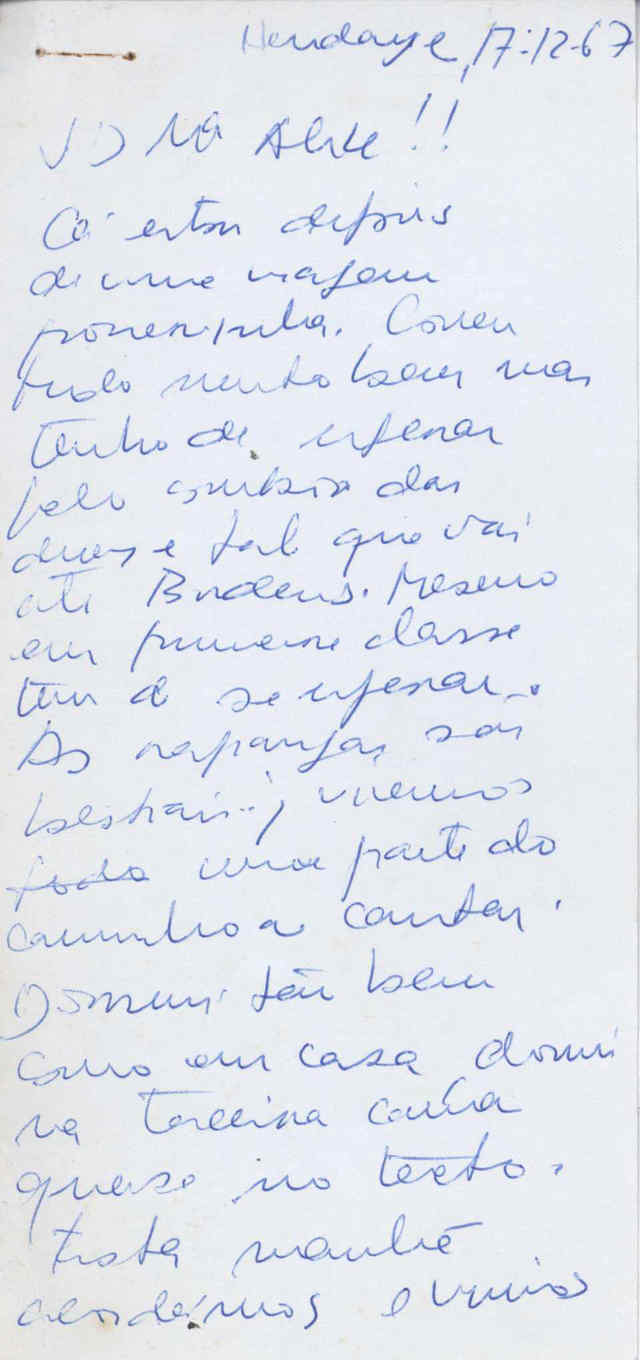 Hendaye, 17-12-67
Cá estou depois
de uma viagem
porreirinha. Correu
tudo muito bem mas
tenho de esperar
pelo comboio das
duas e tal que vai
até Bordeus. Mesmo
em primeira classe
tem de se esperar.
As raparigas são
bestiais; viemos
toda uma parte do
caminho a cantar.
Dormi tão bem
como em casa dormi
na terceira cama
quase no tecto.
Esta manhã
acordámos e vimos